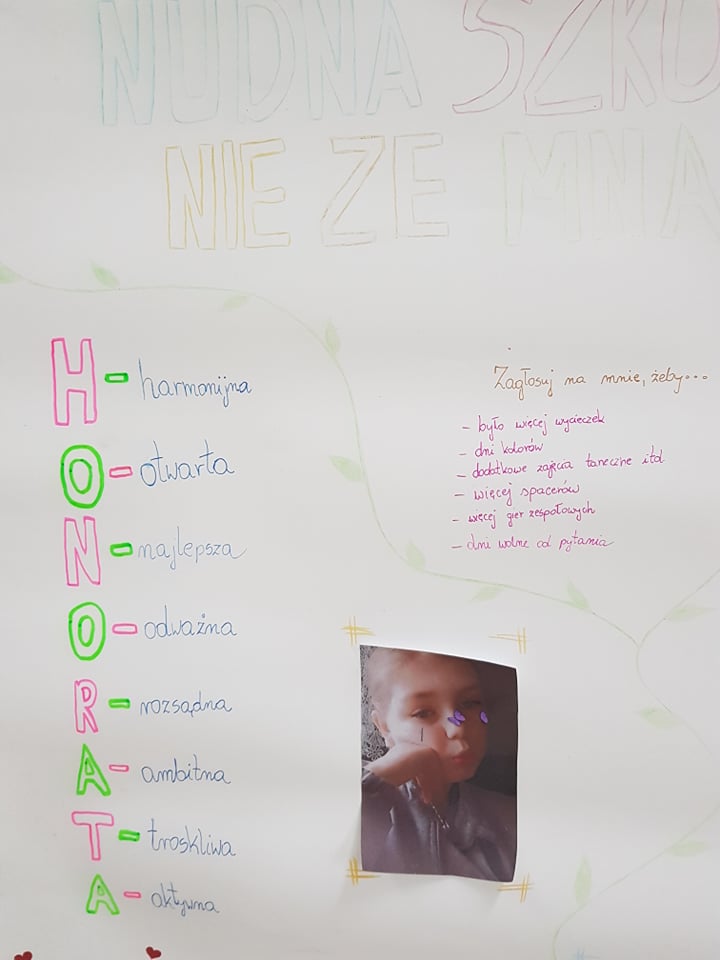 NUDNA SZKO
NIE ZE MNĄ
H - harmonijna
O - otwarta
N - najlepsza
O - odważna
R - rozsądna
A - ambitna
T - troskliwa
A - aktywna
Zagłosuj na mnie, żeby...
- było więcej wycieczek
- dni kolorów
- dodatkowe zajęcia taneczne itd.
- więcej spacerów
- więcej gier zespołowych
- dni wolne od pytania